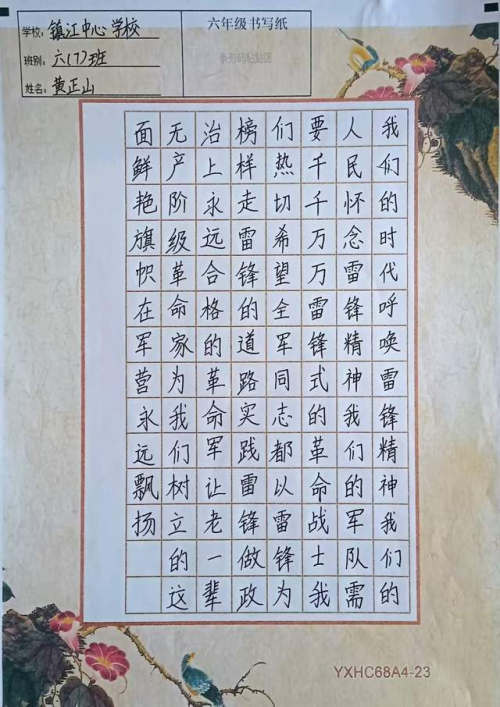 学校:镇江中心学校
班别:六(7)班
姓名:黄正山
六年级书写纸
条形码粘贴区
我们的时代呼唤雷锋精神我们的
人民怀念雷锋精神我们的军队需
要千千万万雷锋式的革命战士我
们热切希望全军同志都以雷锋为
榜样走雷锋的道路实践雷锋做政
治上永远合格的革命军让老一辈
无产阶级革命家为我们树立的这
面鲜艳旗帜在军营永远飘扬
YXHC68A4-23